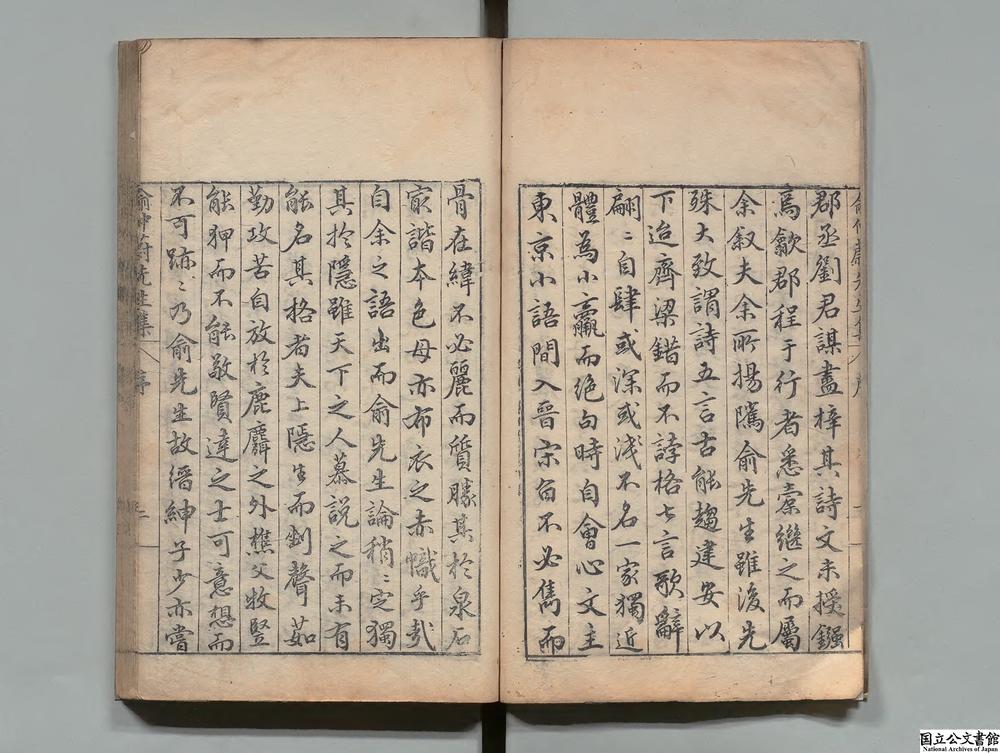 郡丞劉君謀盡梓其詩文未授鏹
爲歙郡程于行者悉橐繼之而屬
余叙夫余所揚隲俞先生雖後先
殊大致謂詩五言古能趨建安以
下迨齊梁錯而不誖格七言歌辭
翩〻自肆或深或淺不名一家獨近
體爲小羸而絶句時自會心文主
東京小語間入晋宋旨不必雋而
骨在緯不必麗而質勝其於泉石
家諧本色毋亦布衣之赤幟乎哉
自余之語出而俞先生論稍〻定獨
其於隱雖天下之人慕說之而未有
能名其格者夫上隱生而剷聲茹
勤攻苦自放於鹿麛之外樵父牧豎
能狎而不能敬賢達之士可意想而
不可跡〻乃俞先生故縉紳子少亦嘗
俞仲蔚先生集 序
国立公文書館
National Archives of Japan